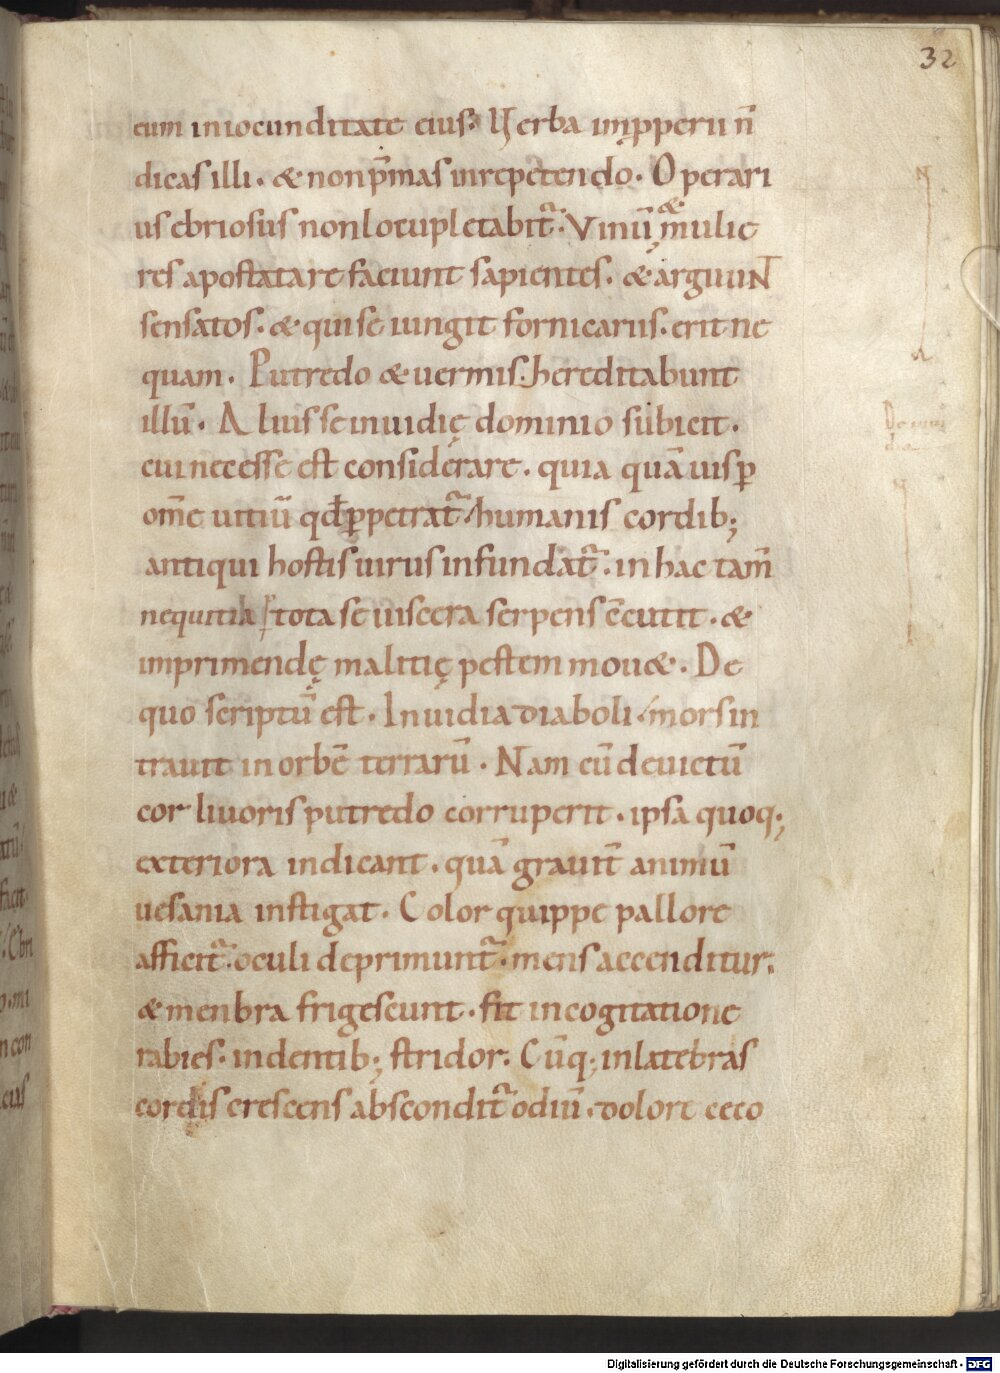 32
eum in iocunditate eius. Uerba inp̱perii n̄
dicas illi. & non p̄mas in repetendo. Operari
us ebriosus non locupletabit᷑. Vinū & mulie
res apostatare faciunt sapientes. & arguunt
sensatos. & qui se iungit fornicariis. erit ne
quam. Putredo & uermis. hereditabunt
illū. Alius se inuidię dominio subicit.
cui necesse est considerare. quia quāuis ꝑ
om̄e uitiū qđ ꝑpetrat᷑ humanis cordib;
antiqui hostis uirus infundat᷑. in hac tam̄
nequitia tota se uiscera serpens c̄cutit. &
imprimendę malitię pestem mou&. De
quo scriptū est. Inuidia diaboli mors in
trauit in orbē terrarū. Nam cū deuictū
cor liuoris putredo corruperit. ipsa quoq;
exteriora indicant. quā grauit̄ animū
uesania instigat. Color quippe pallore
afficit᷑. oculi deprimunt᷑. mens accenditur.
& menbra frigescunt. fit in cogitatione
rabies. in dentib; stridor. Cūq; in latebras
cordis crescens abscondit᷑ odiū. dolore ceco
Digitalisierung gefördert durch die Deutsche Forschungsgemeinschaft - DFG